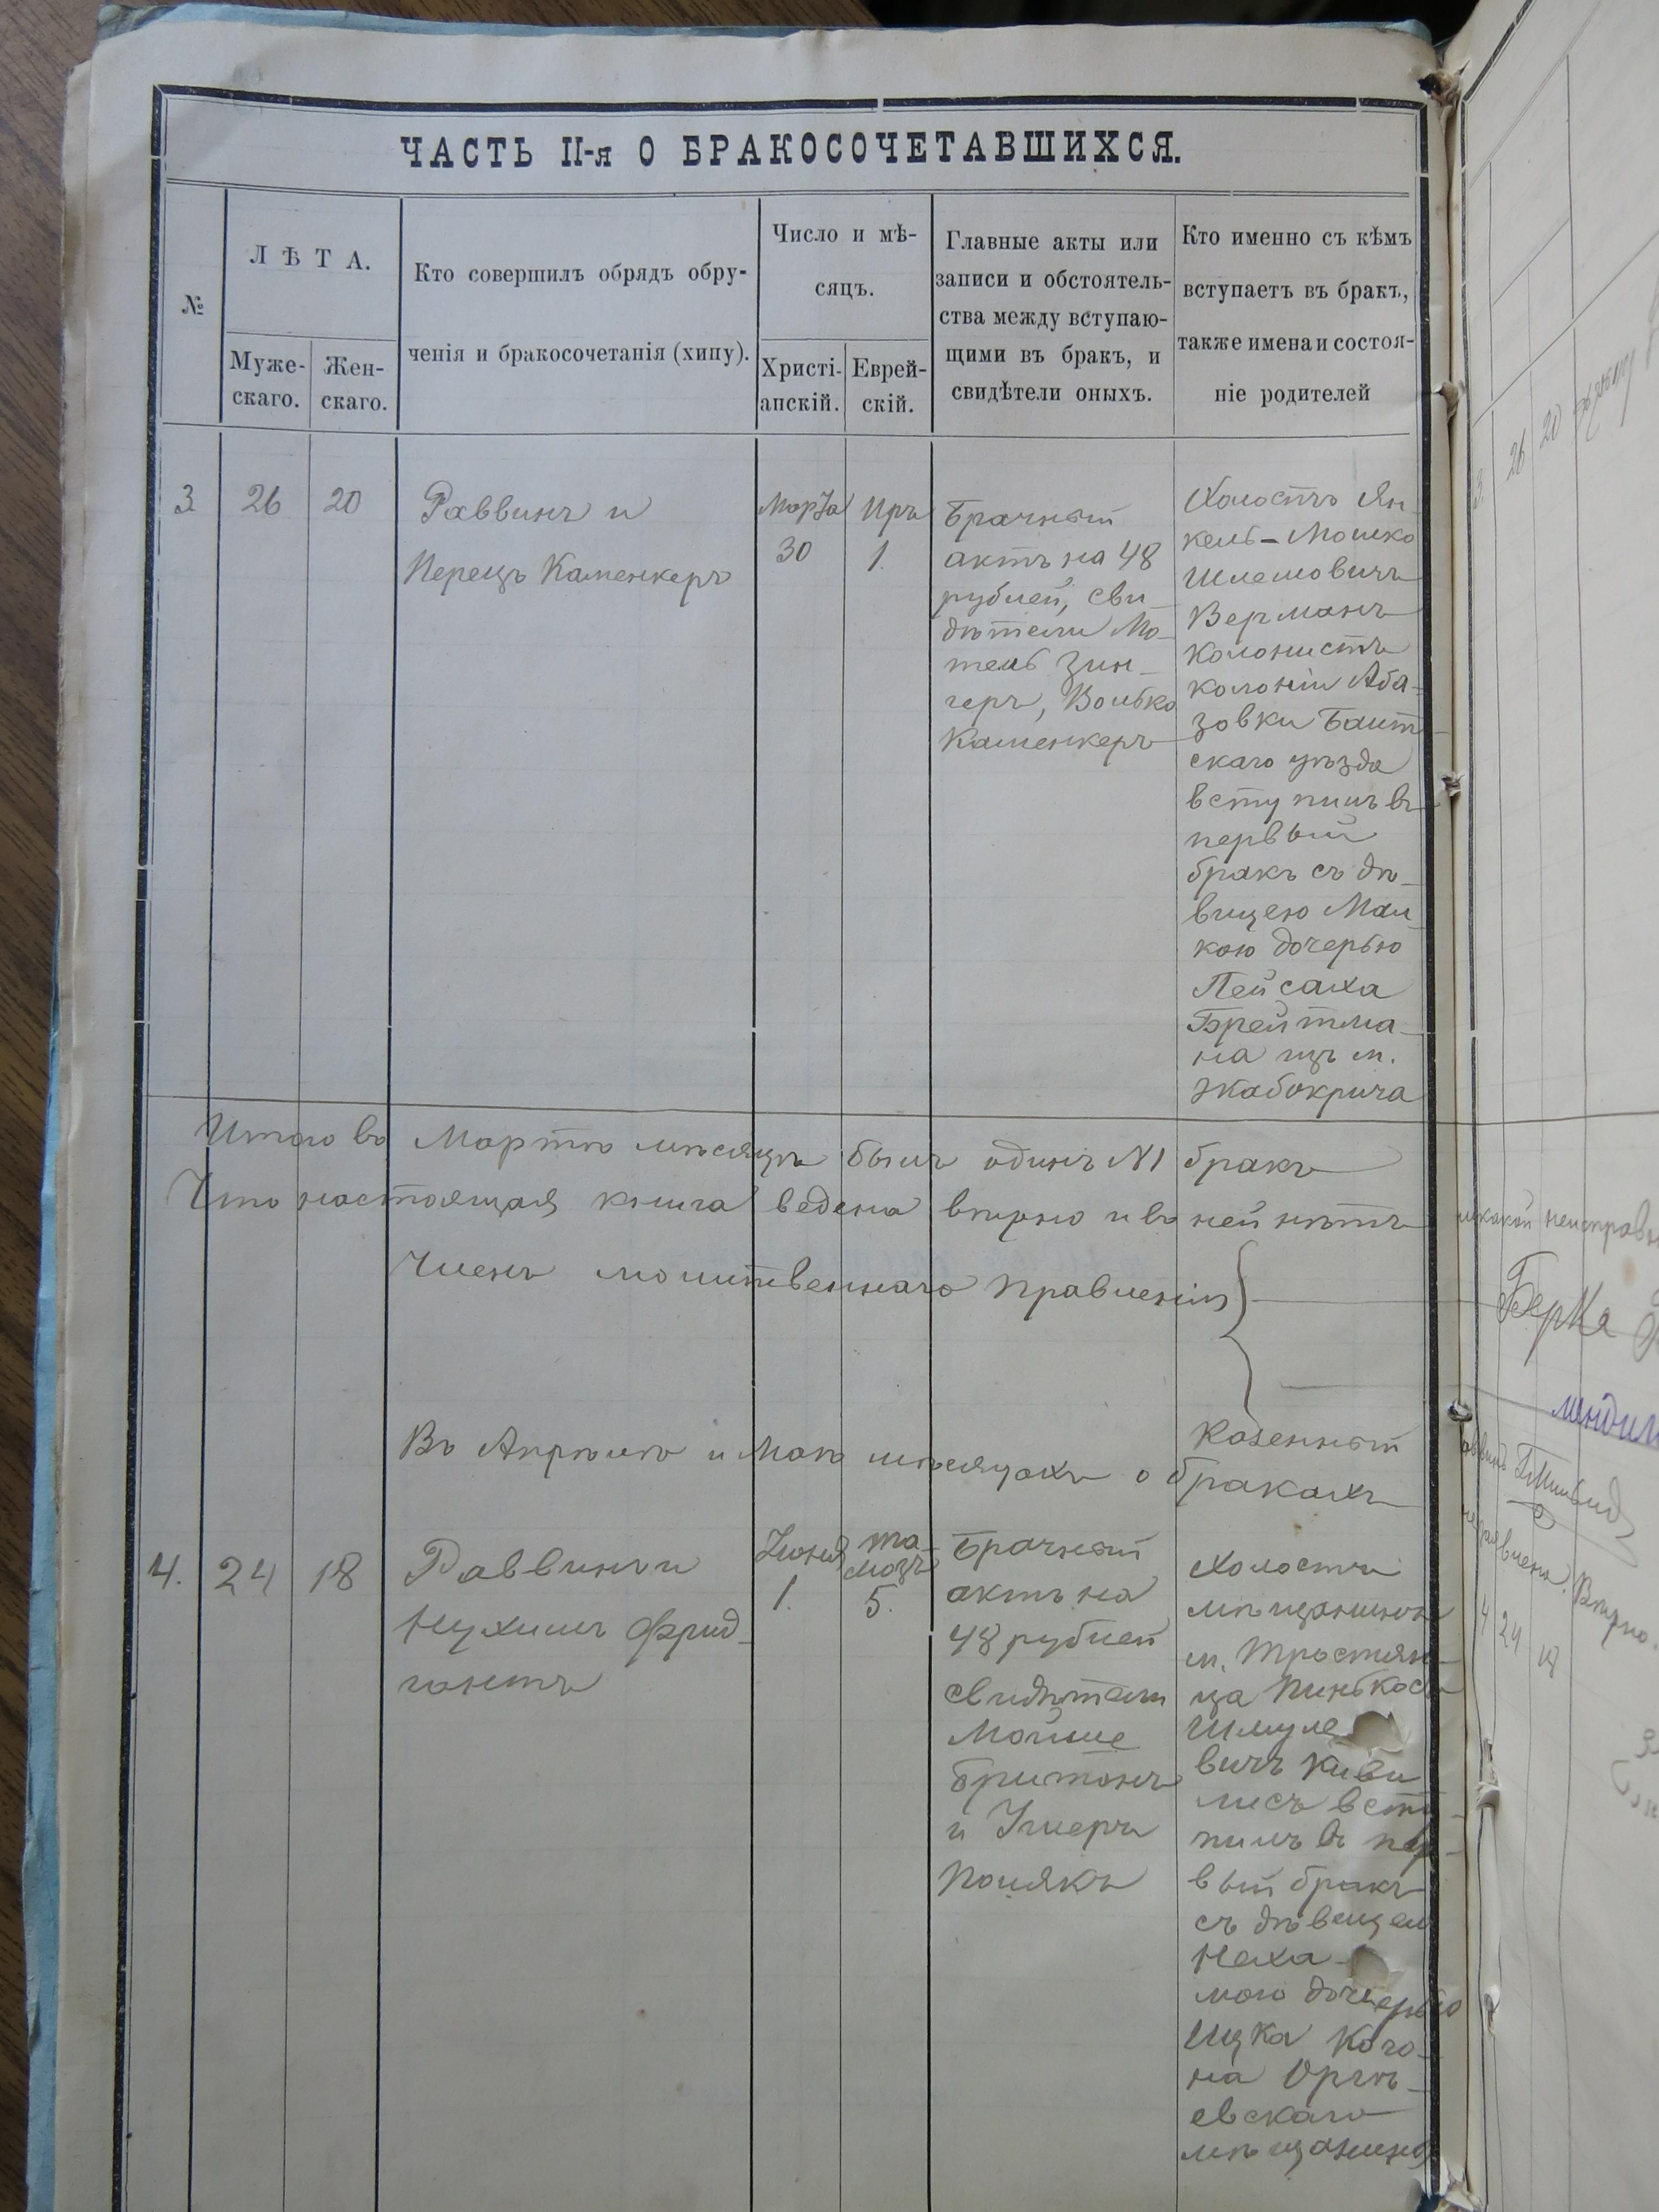 ЧАСТЬ II-я О БРАКОСОЧЕТАВШИХСЯ.
№
ЛѢТА.
Муже-
скаго.
Жен-
скаго.
Кто совершилъ обрядъ обру-
ченія и бракосочетанія (хипу).
Число и мѣ-
сяцъ.
Христі-
анскій.
Еврей-
скій.
Главные акты или
записи и обстоятель-
ства между вступаю-
щими въ бракъ, и
свидѣтели оныхъ.
Кто именно съ кѣмъ
вступаетъ въ бракъ,
также имена и состоя-
ніе родителей
3
26
20
Раввинъ и
Перецъ Каменкеръ
Марта
30
Иръ
1.
Брачный
актъ на 48
рублей, сви-
дѣтели Мо-
тель Зин-
геръ, Волько
Каменкеръ
Холостъ Ян-
кель-Мошко
Шлемовичъ
Верманъ
колонистъ
колоніи Аба-
зовки Балт-
скаго уѣзда
вступилъ въ
первый
бракъ съ дѣ-
вицею Мал-
кою дочерью
Пейсаха
Брейтма-
на изъ м.
Жабокрича
Итого въ Мартѣ мѣсяцѣ былъ одинъ №1 бракъ
Что настоящая книга ведена вѣрно и въ ней нѣтъ
Членъ молитвеннаго правленія
Казенный
Въ Апрѣлѣ и Маѣ мѣсяцахъ о бракахъ
4.
24
18
Раввинъ и
Нухимъ Фрид-
гантъ
Іюня
1.
Та-
мозъ
5.
Брачный
актъ на
48 рублей
свидѣтели
Мойше
Бритонъ
и Умеръ
Полякъ
Холостъ
мѣщанинъ
м. Тростян-
ца Пинькосъ
Шмуле
вичъ
лисъ всту-
пилъ въ пер-
вый бракъ
съ дѣвицею
Неха-
мою дочерью
Ицка Кого-
на Оргѣ-
евскаго
мѣщанина
никакой неисправн
Берка
4
24
18
3.
26
20